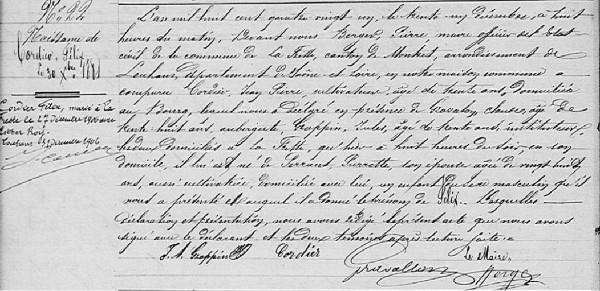 Naissance de
Cordier, Félix
le 30 Xbre 1881
Cordier Félix, marié à La
Frette le 27 Décembre 1906 avec
Roy
Louhans 1906
L'an mil huit cent quatre vingt un, le trente un décembre, à huit
heures du matin, Devant nous Berger, Pierre, maire officier de l'état
civil de la commune de La Frette, canton de Montret, arrondissement de
Louhans, département de Saône et Loire, en notre maison commune a
comparu Cordier, Jean Pierre, cultivateur, âgé de trente ans, domicilié
au Bourg, lequel nous a déclaré en présence de âgé de
trente huit ans, aubergiste, Grappin, Jules, âgé de trente ans, instituteur,
tous deux domiciliés à La Frette, qu'hier à huit heures du soir, en son
domicile, il lui est né de Perrand, Pierrette, son épouse âgée de vingt huit
ans, aussi cultivatrice, domiciliée avec lui, un enfant du sexe masculin qu'il
nous a présenté et auquel il a donné le prénom de Félix. Lesquelles
déclaration et présentation, nous avons rédigé le présent acte que nous avons
signé avec le déclarant et les deux témoins après lecture faite.
J. Grappin Cordier Le Maire,
Berger